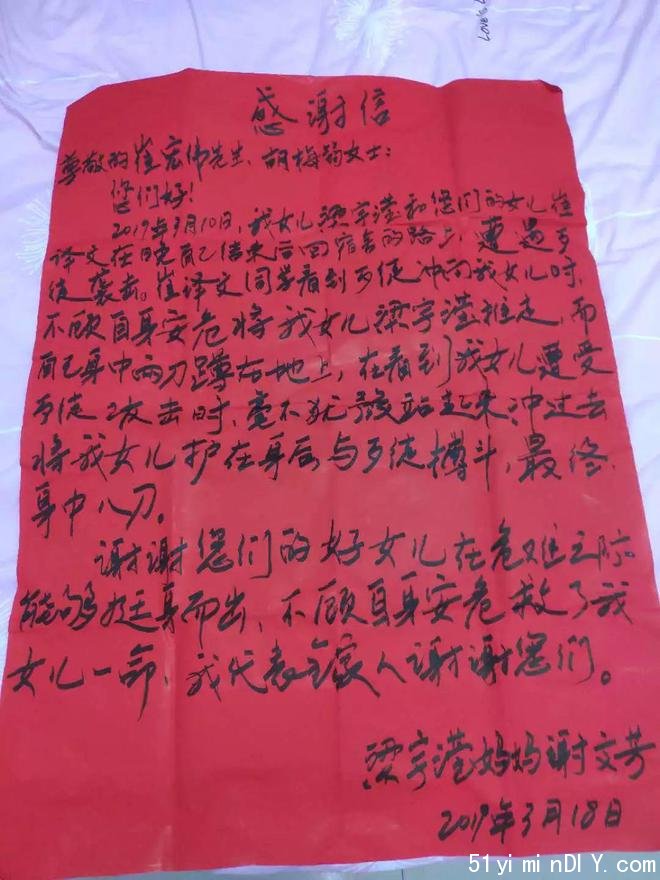 Love's L
感谢信
尊敬的崔宏伟先生、胡梅菊女士:
您们好!
2019年3月10日,我女儿梁宇滢和您们的女儿崔
译文在晚自习结束后回宿舍的路上,遭遇歹
徒袭击。崔译文同学看到歹徒冲向我女儿时,
不顾自身安危将我女儿梁宇滢推走,而
自己身中两刀蹲在地上,在看到我女儿遭受
歹徒攻击时,毫不犹豫站起来冲过去
将我女儿护在身后与歹徒搏斗,最终
身中八刀。
谢谢您们的好女儿在危难之际
能够挺身而出、不顾自身安危救了我
女儿一命,我代表全家人谢谢您们。
梁宇滢妈妈谢文芳
2019年3月18日
51yiminDIY.com